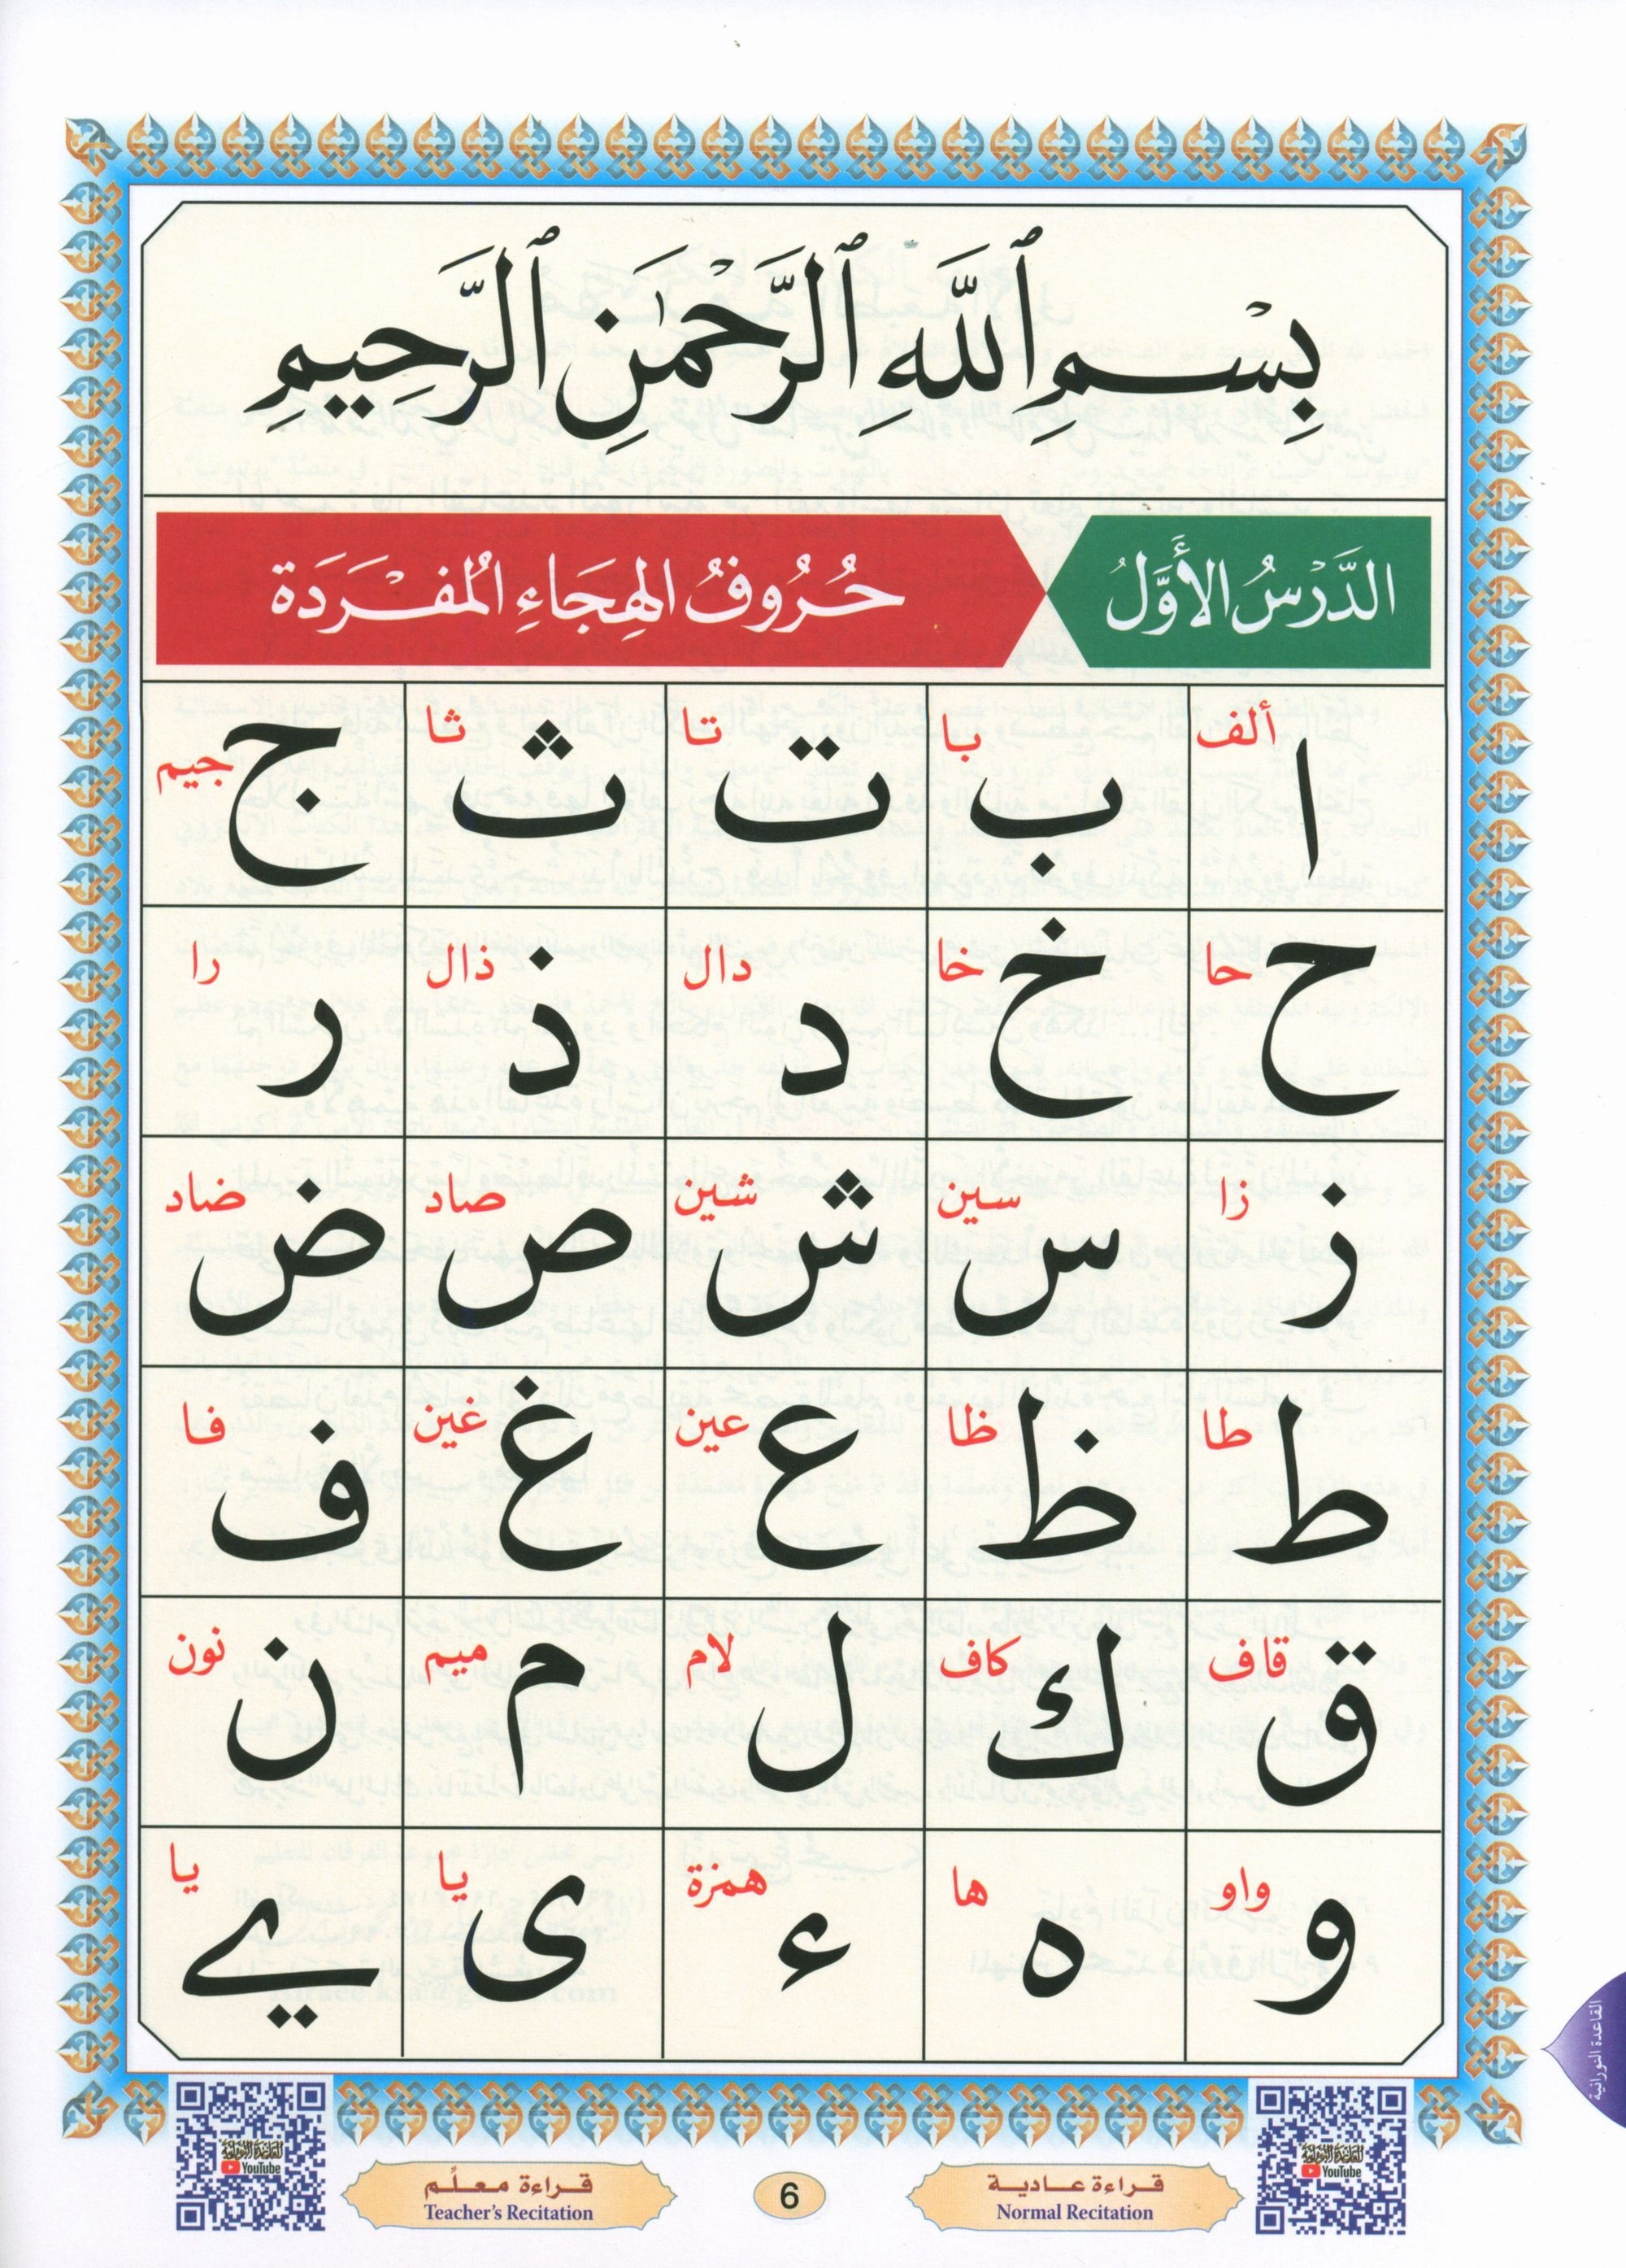 بِسْمِ ٱللَّهِ ٱلرَّحْمَٰنِ ٱلرَّحِيمِ
الدَّرْسُ الأَوَّلُ حُرُوفُ الهِجَاءِ المُفْرَدَة
ا ألف ب با ت تا ث ثا ج جيم
ح حا خ خا د دال ذ ذال ر را
ز زا س سين ش شين ص صاد ض ضاد
ط طا ظ ظا ع عين غ غين ف فا
ق قاف ك كاف ل لام م ميم ن نون
و واو ه ها ء همزة ى يا ے يا
القاعدة النورانية
القاعدة النورانية
YouTube
قراءة عادية
Normal Recitation
6
قراءة معلِّم
Teacher's Recitation
القاعدة النورانية
YouTube